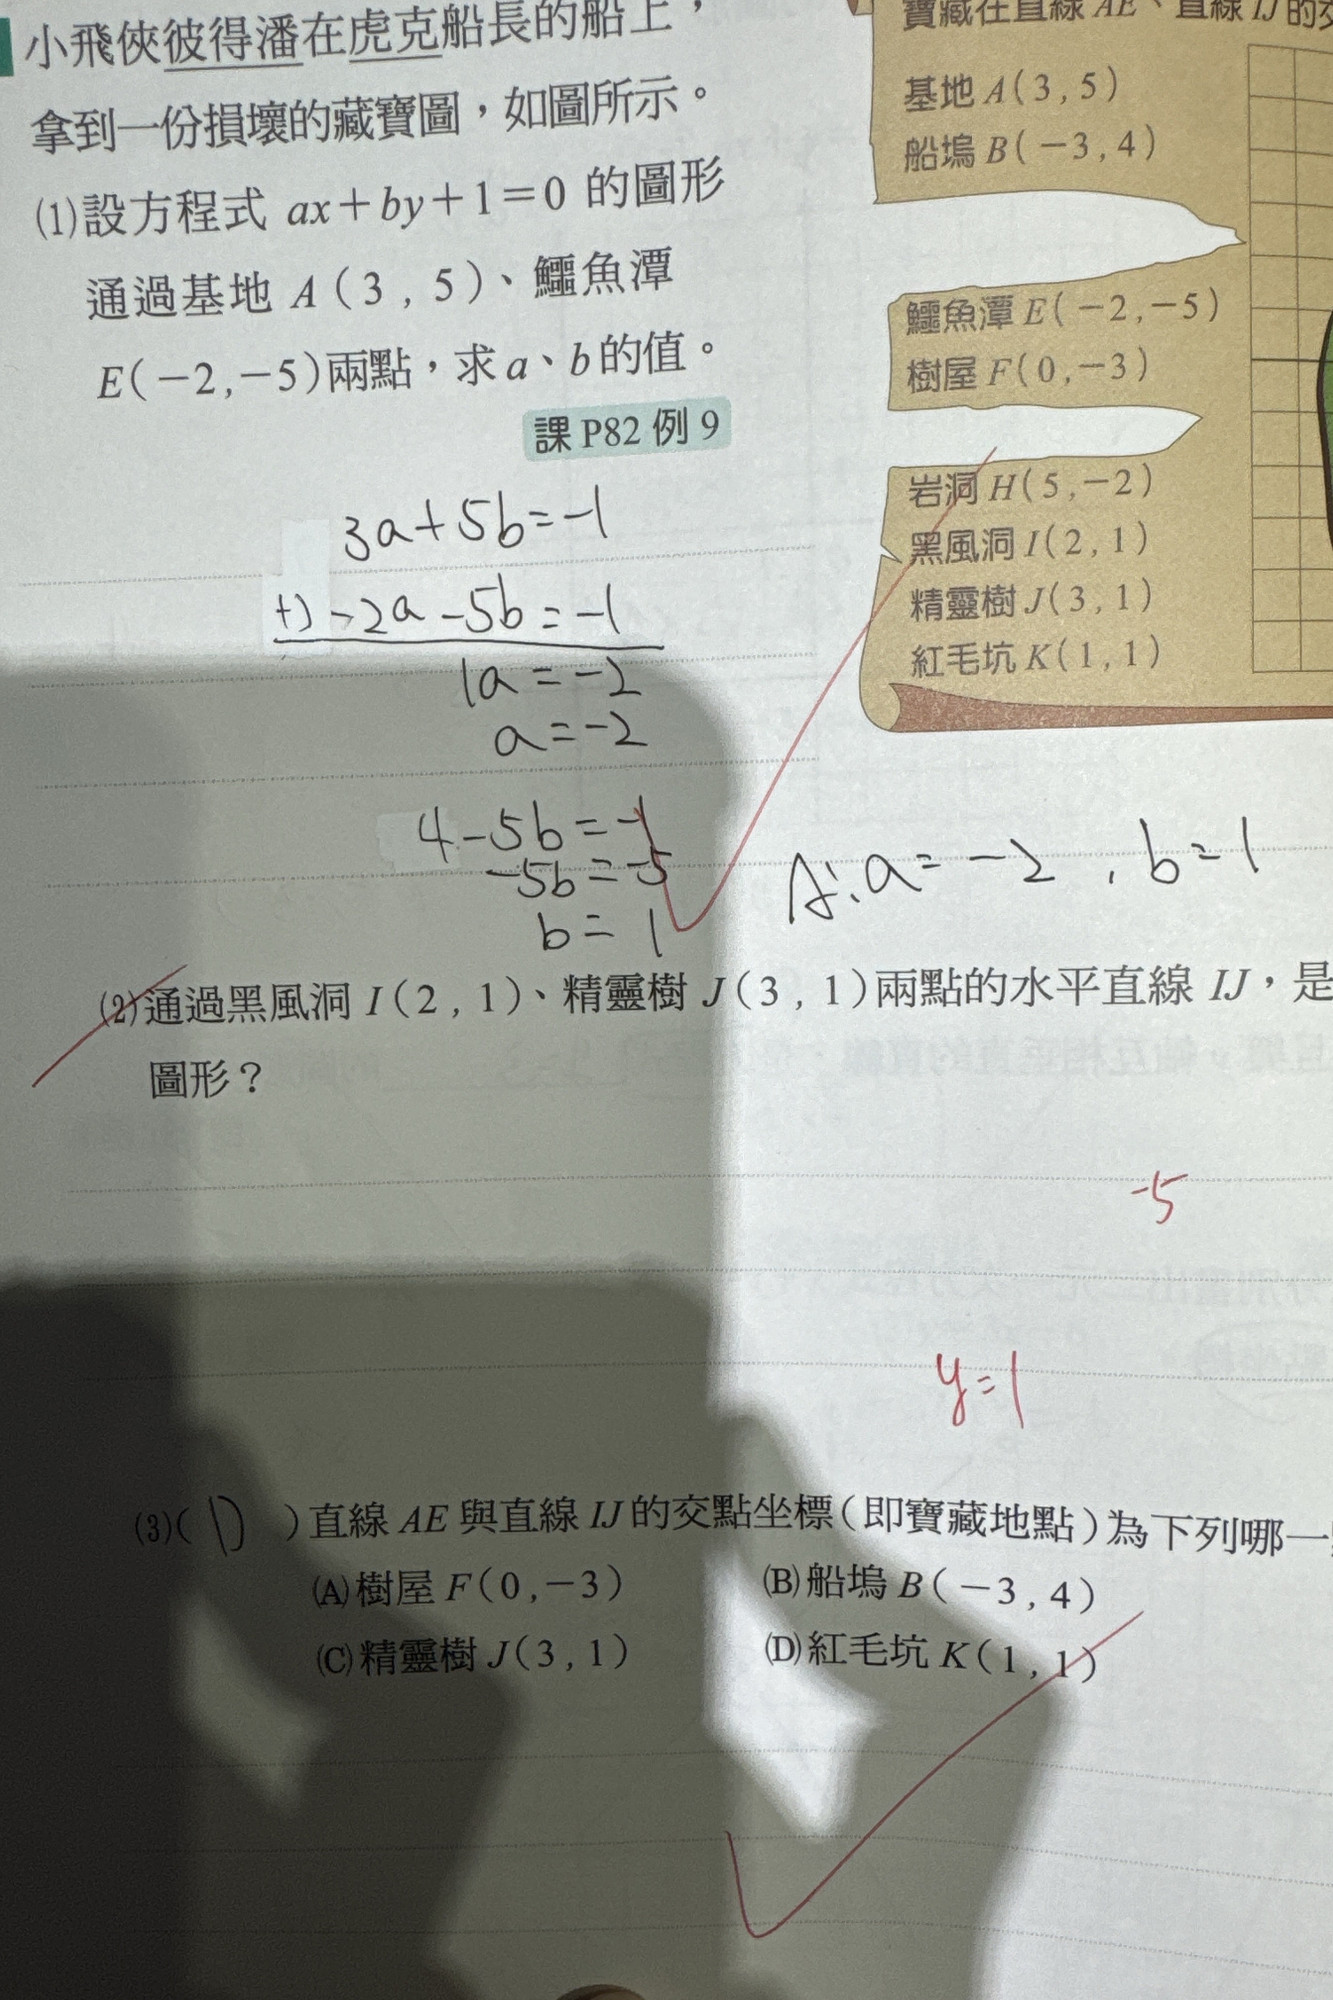 小飛俠彼得潘在虎克船長的船上，
拿到一份損壞的藏寶圖，如圖所示。
(1)設方程式 ax＋by＋1＝0 的圖形
通過基地 A（3 , 5）、鱷魚潭
E(－2,－5)兩點，求 a、b 的值。
課 P82 例 9
寶藏在直線 AE、直線 IJ 的
基地 A(3, 5)
船塢 B(－3, 4)
鱷魚潭 E(－2,－5)
樹屋 F(0,－3)
岩洞 H(5,－2)
黑風洞 I(2, 1)
精靈樹 J(3, 1)
紅毛坑 K(1, 1)
3a+5b=-1
+) -2a-5b=-1
1a=-2
a=-2
4-5b=-1
-5b=-5
b=1
A:a=-2, b=1
(2)通過黑風洞 I（2 , 1）、精靈樹 J（3 , 1）兩點的水平直線 IJ，是
圖形？
-5
y=1
(3)( D )直線 AE 與直線 IJ 的交點坐標（即寶藏地點）為下列哪一
(A)樹屋 F（0 ,－3） (B)船塢 B（－3 , 4）
(C)精靈樹 J（3 , 1） (D)紅毛坑 K（1 , 1）